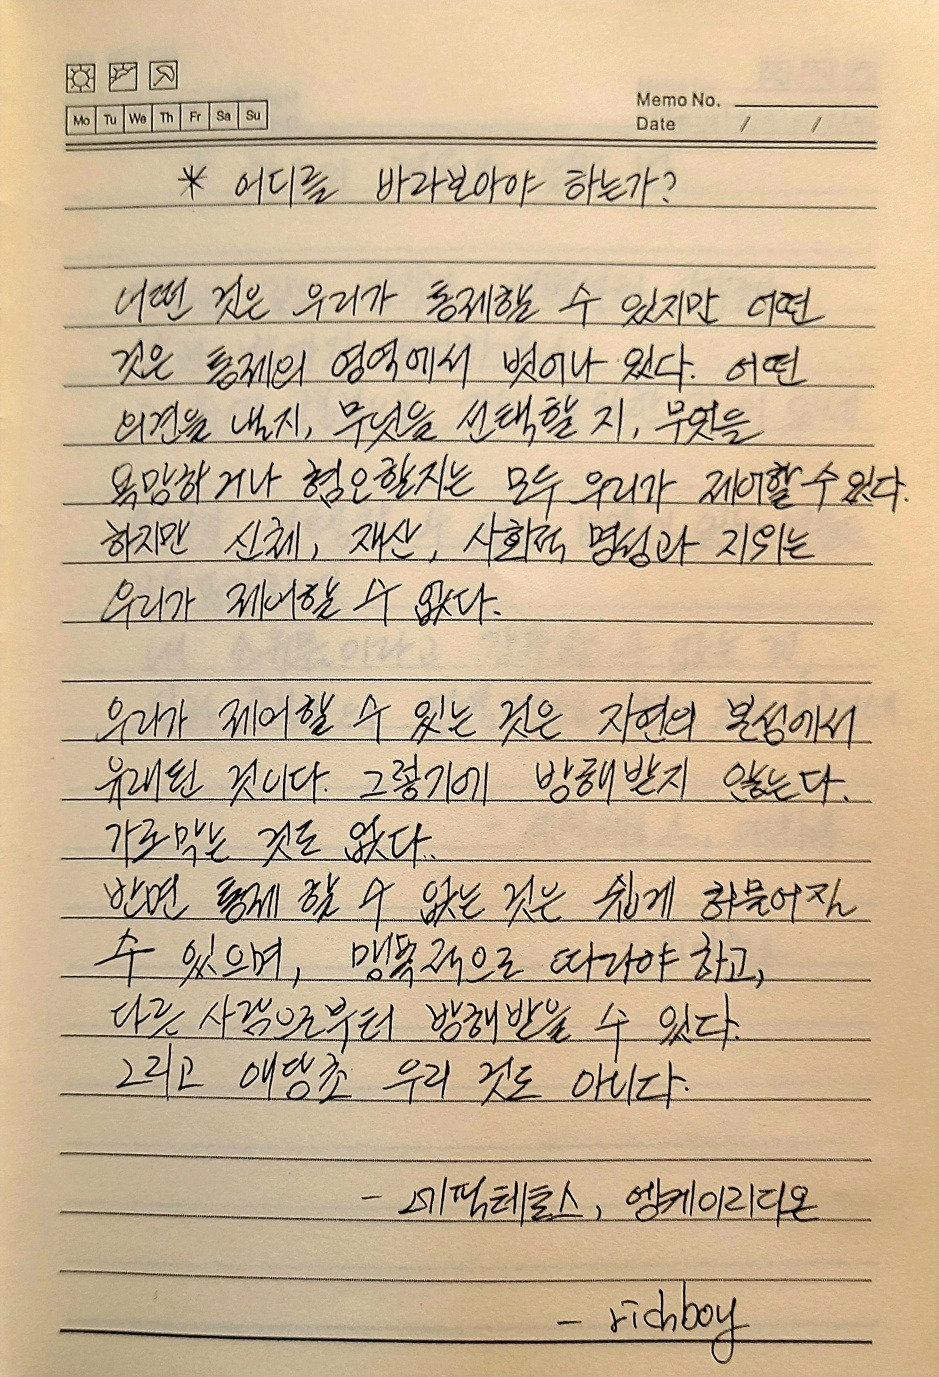 Mo Tu We Th Fr Sa Su
Memo No.
Date / /
* 어디를 바라보아야 하는가?
어떤 것은 우리가 통제할 수 있지만 어떤
것은 통제의 영역에서 벗어나 있다. 어떤
의견을 낼지, 무엇을 선택할 지, 무엇을
욕망하거나 혐오할지는 모두 우리가 제어할 수 있다.
하지만 신체, 재산, 사회적 명성과 지위는
우리가 제어할 수 없다.
우리가 제어할 수 있는 것은 자연의 본성에서
유래된 것이다. 그렇기에 방해받지 않는다.
가로막는 것도 없다..
반면 통제 할 수 없는 것은 쉽게 허물어질
수 있으며, 맹목적으로 따라야 하고,
다른 사람으로부터 방해받을 수 있다.
그리고 애당초 우리 것도 아니다.
- 에픽테토스, 엥케이리디온
- richboy